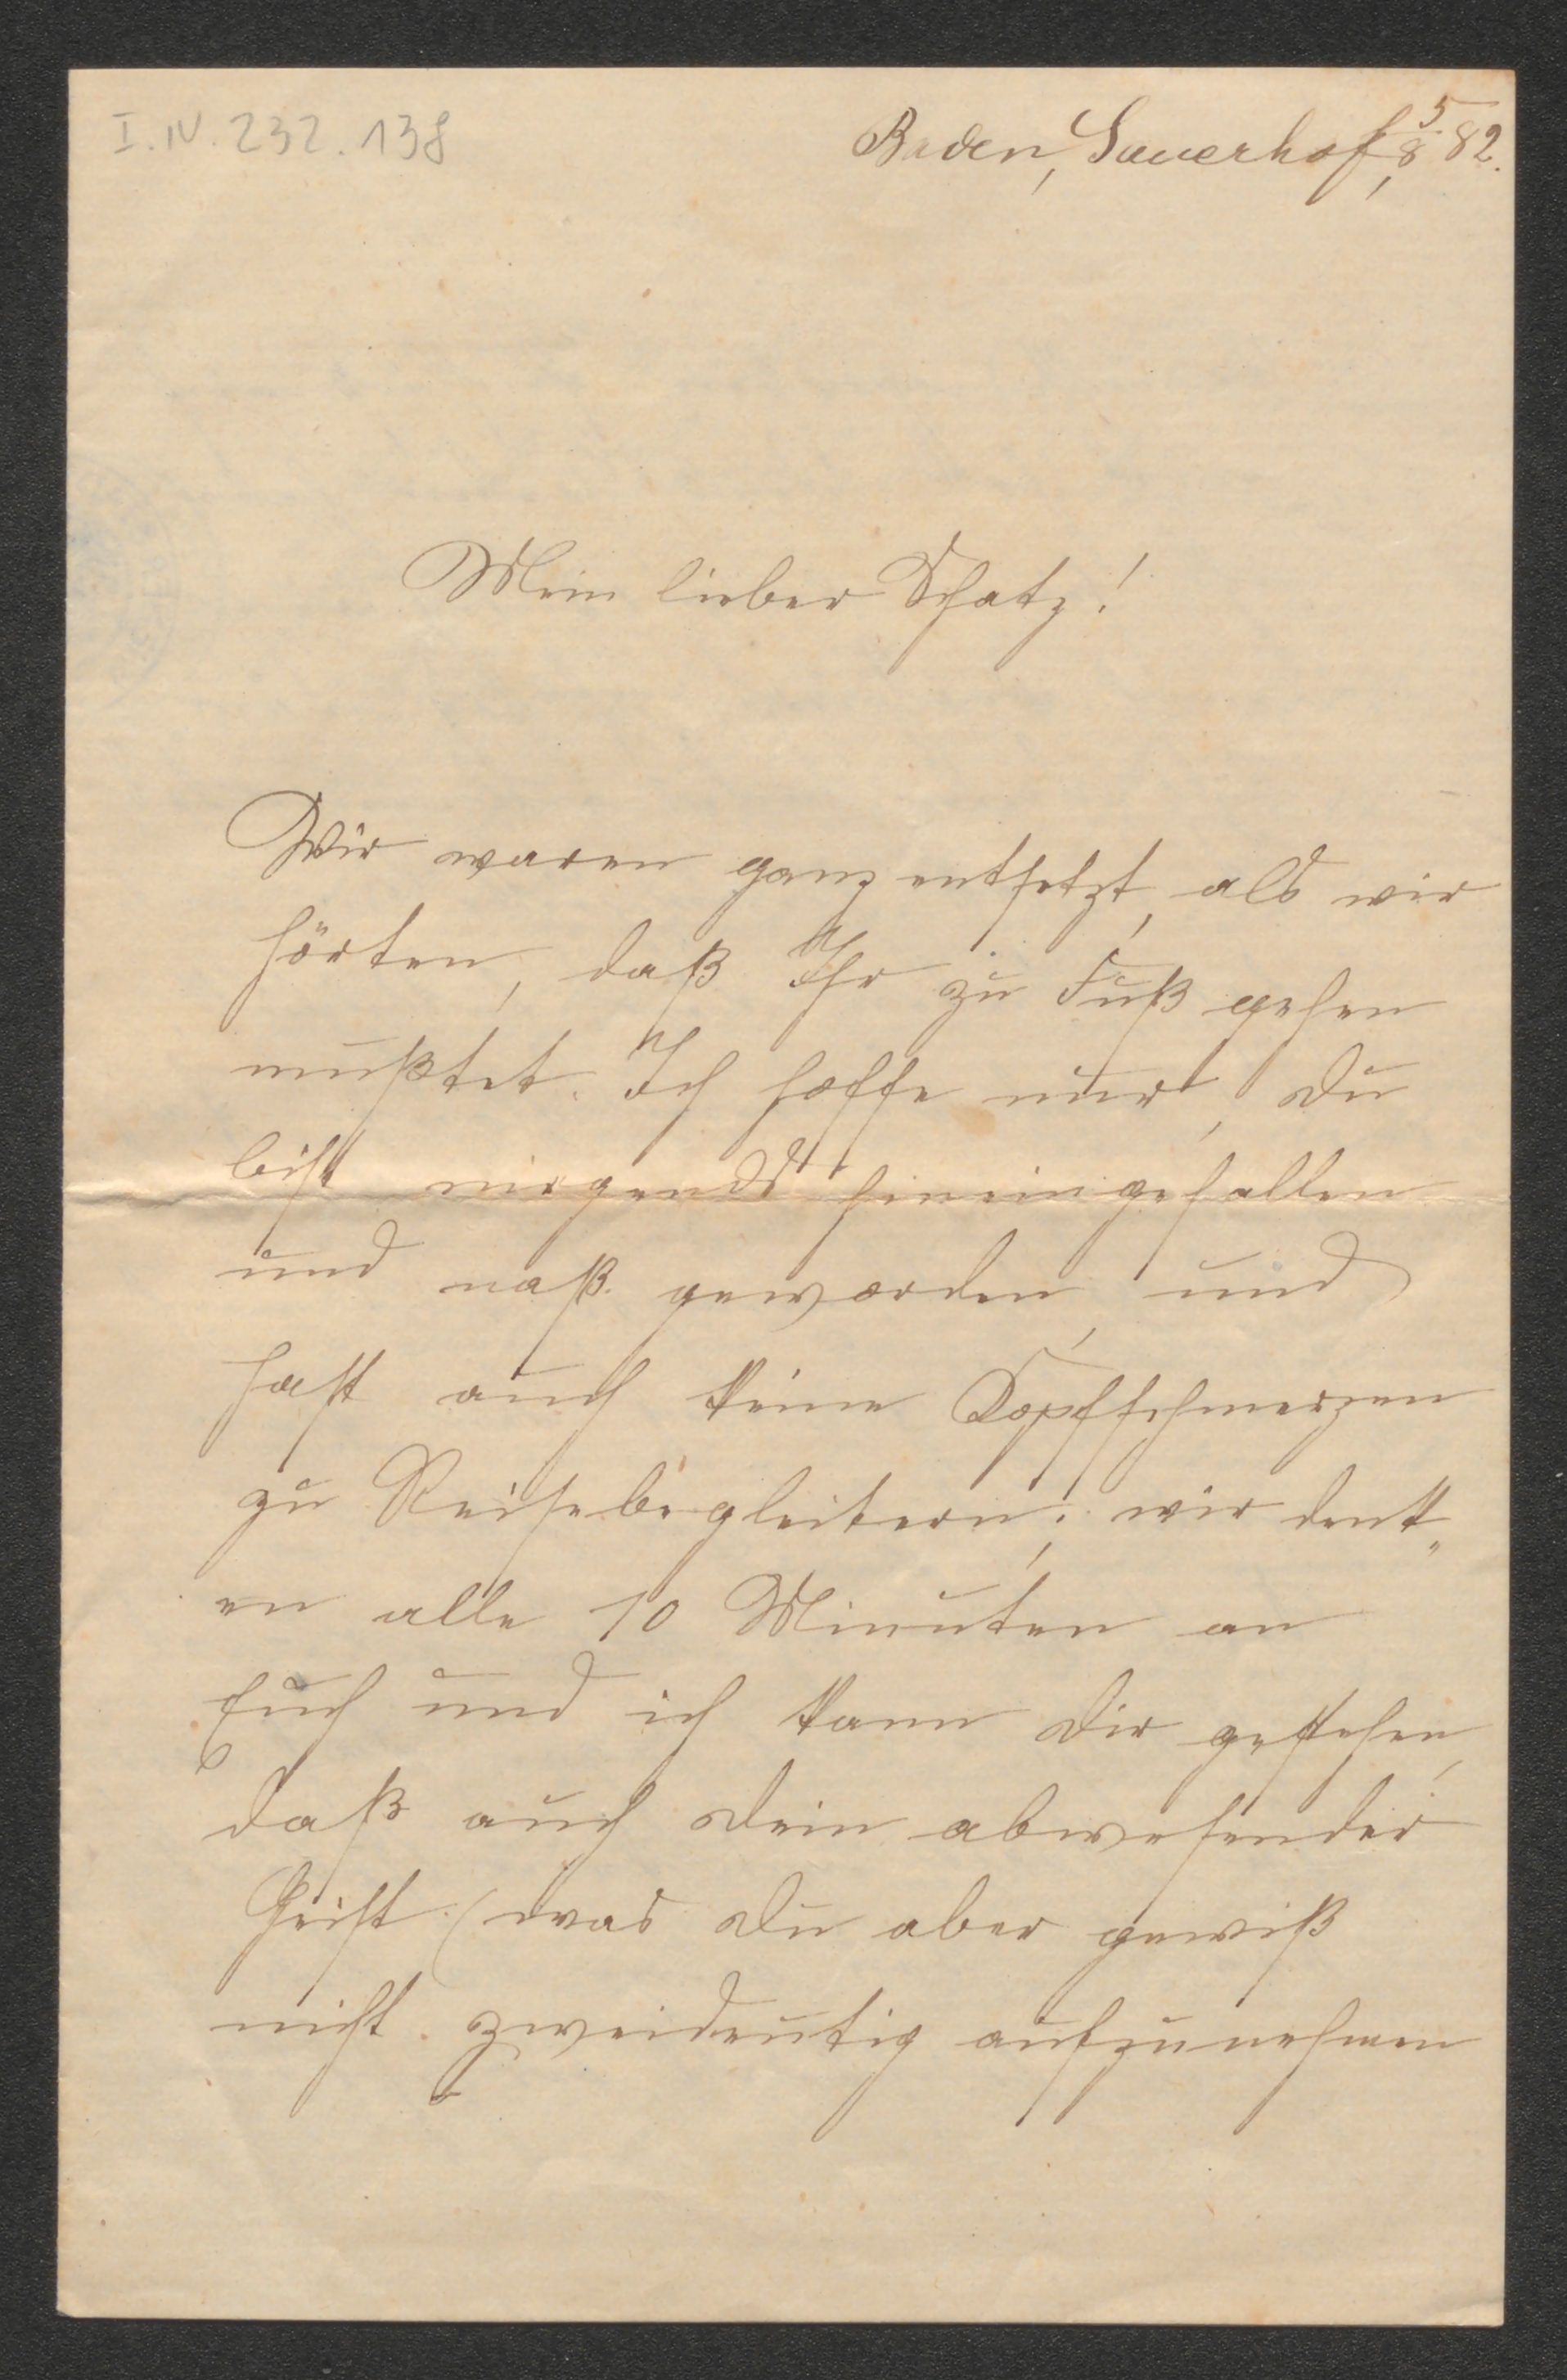 I.N. 232.138
Baden, Sauerhof, 5./8. 82.
Mein lieber Schatz!
Wir waren ganz entsetzt, als wir
hörten, daß Ihr zu Fuß gehen
mußtet. Ich hoffe nur, Du
bist nirgends hineingefallen
und naß geworden, und
hast auch keine Kopfschmerzen
zu Reisebegleitern; wir denk„
en alle 10 Minuten an
Euch und ich kann Dir gestehen,
daß auch Dein abwesender
Geist (was Du aber gewiß
nicht zweideutig aufzunehmen